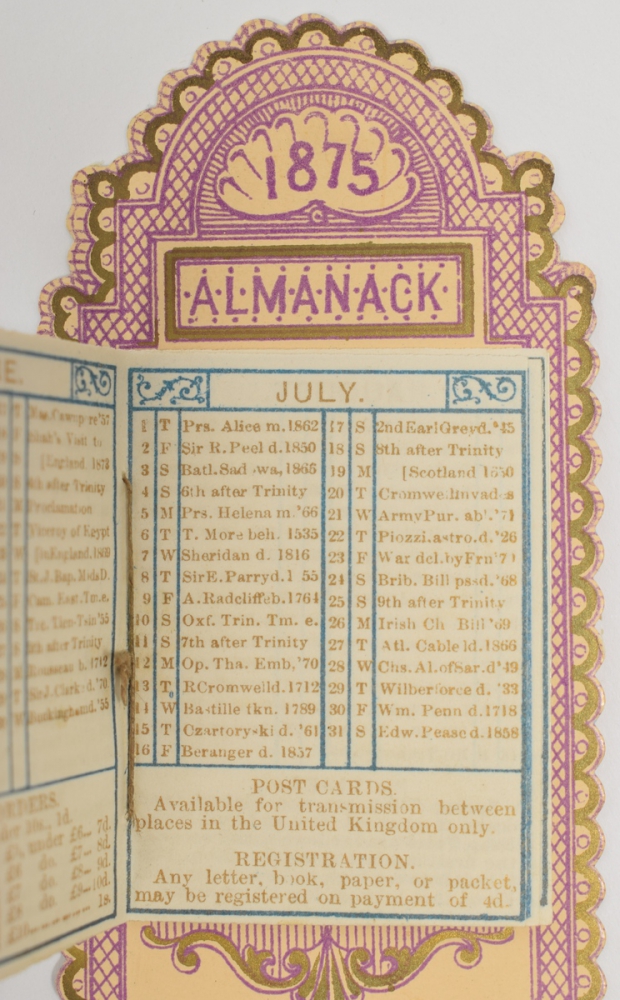 1875
ALMANACK
JULY.
1 T Prs. Alice m. 1862
2 F Sir R. Peel d. 1850
3 S Batl. Sadowa, 1866
4 S 6th after Trinity
5 M Prs. Helena m. '66
6 T T. More beh. 1535
7 W Sheridan d. 1816
8 T Sir E. Parry d. 1 55
9 F A. Radcliffe b. 1764
10 S Oxf. Trin. Tm. e.
11 S 7th after Trinity
12 M Op. Tha. Emb. '70
13 T R Cromwell d. 1712
14 W Bastille tkn. 1789
15 T Czartoryski d. '61
16 F Beranger d. 1857
17 S 2nd Earl Grey d. '45
18 S 8th after Trinity
19 M [Scotland 1650
20 T Cromwell invades
21 W Army Pur. ab'. '71
22 T Piozzi, astro. d. '26
23 F War dcl. by Frn '7
24 S Brib. Bill pasd. '68
25 S 9th after Trinity
26 M Irish Ch Bill '69
27 T Atl. Cable ld. 1866
28 W Chs. Al. of Sar. d '49
29 T Wilberforce d. '33
30 F Wm. Penn d. 1718
31 S Edw. Pease d. 1858
POST CARDS.
Available for transmission between
places in the United Kingdom only.
REGISTRATION.
Any letter, book, paper, or packet,
may be registered on payment of 4d.
E.
Cawnpore '57
Shah's Visit to
[England, 1873
4th after Trinity
Proclamation
Viceroy of Egypt
[in England. 1869
St. J. Bap. Mids D.
Cam. East. Tm. e.
Tien-Tsin
5th after Trinity
Rousseau b. 1712
Sir J. Clark d. '70
Buckingham d. '55
ORDERS.
under 10s., 1d.
under £6.. 7d.
do. £7.. 8d.
do. £8.. 9d.
do. £9..10d.
£10 1s.